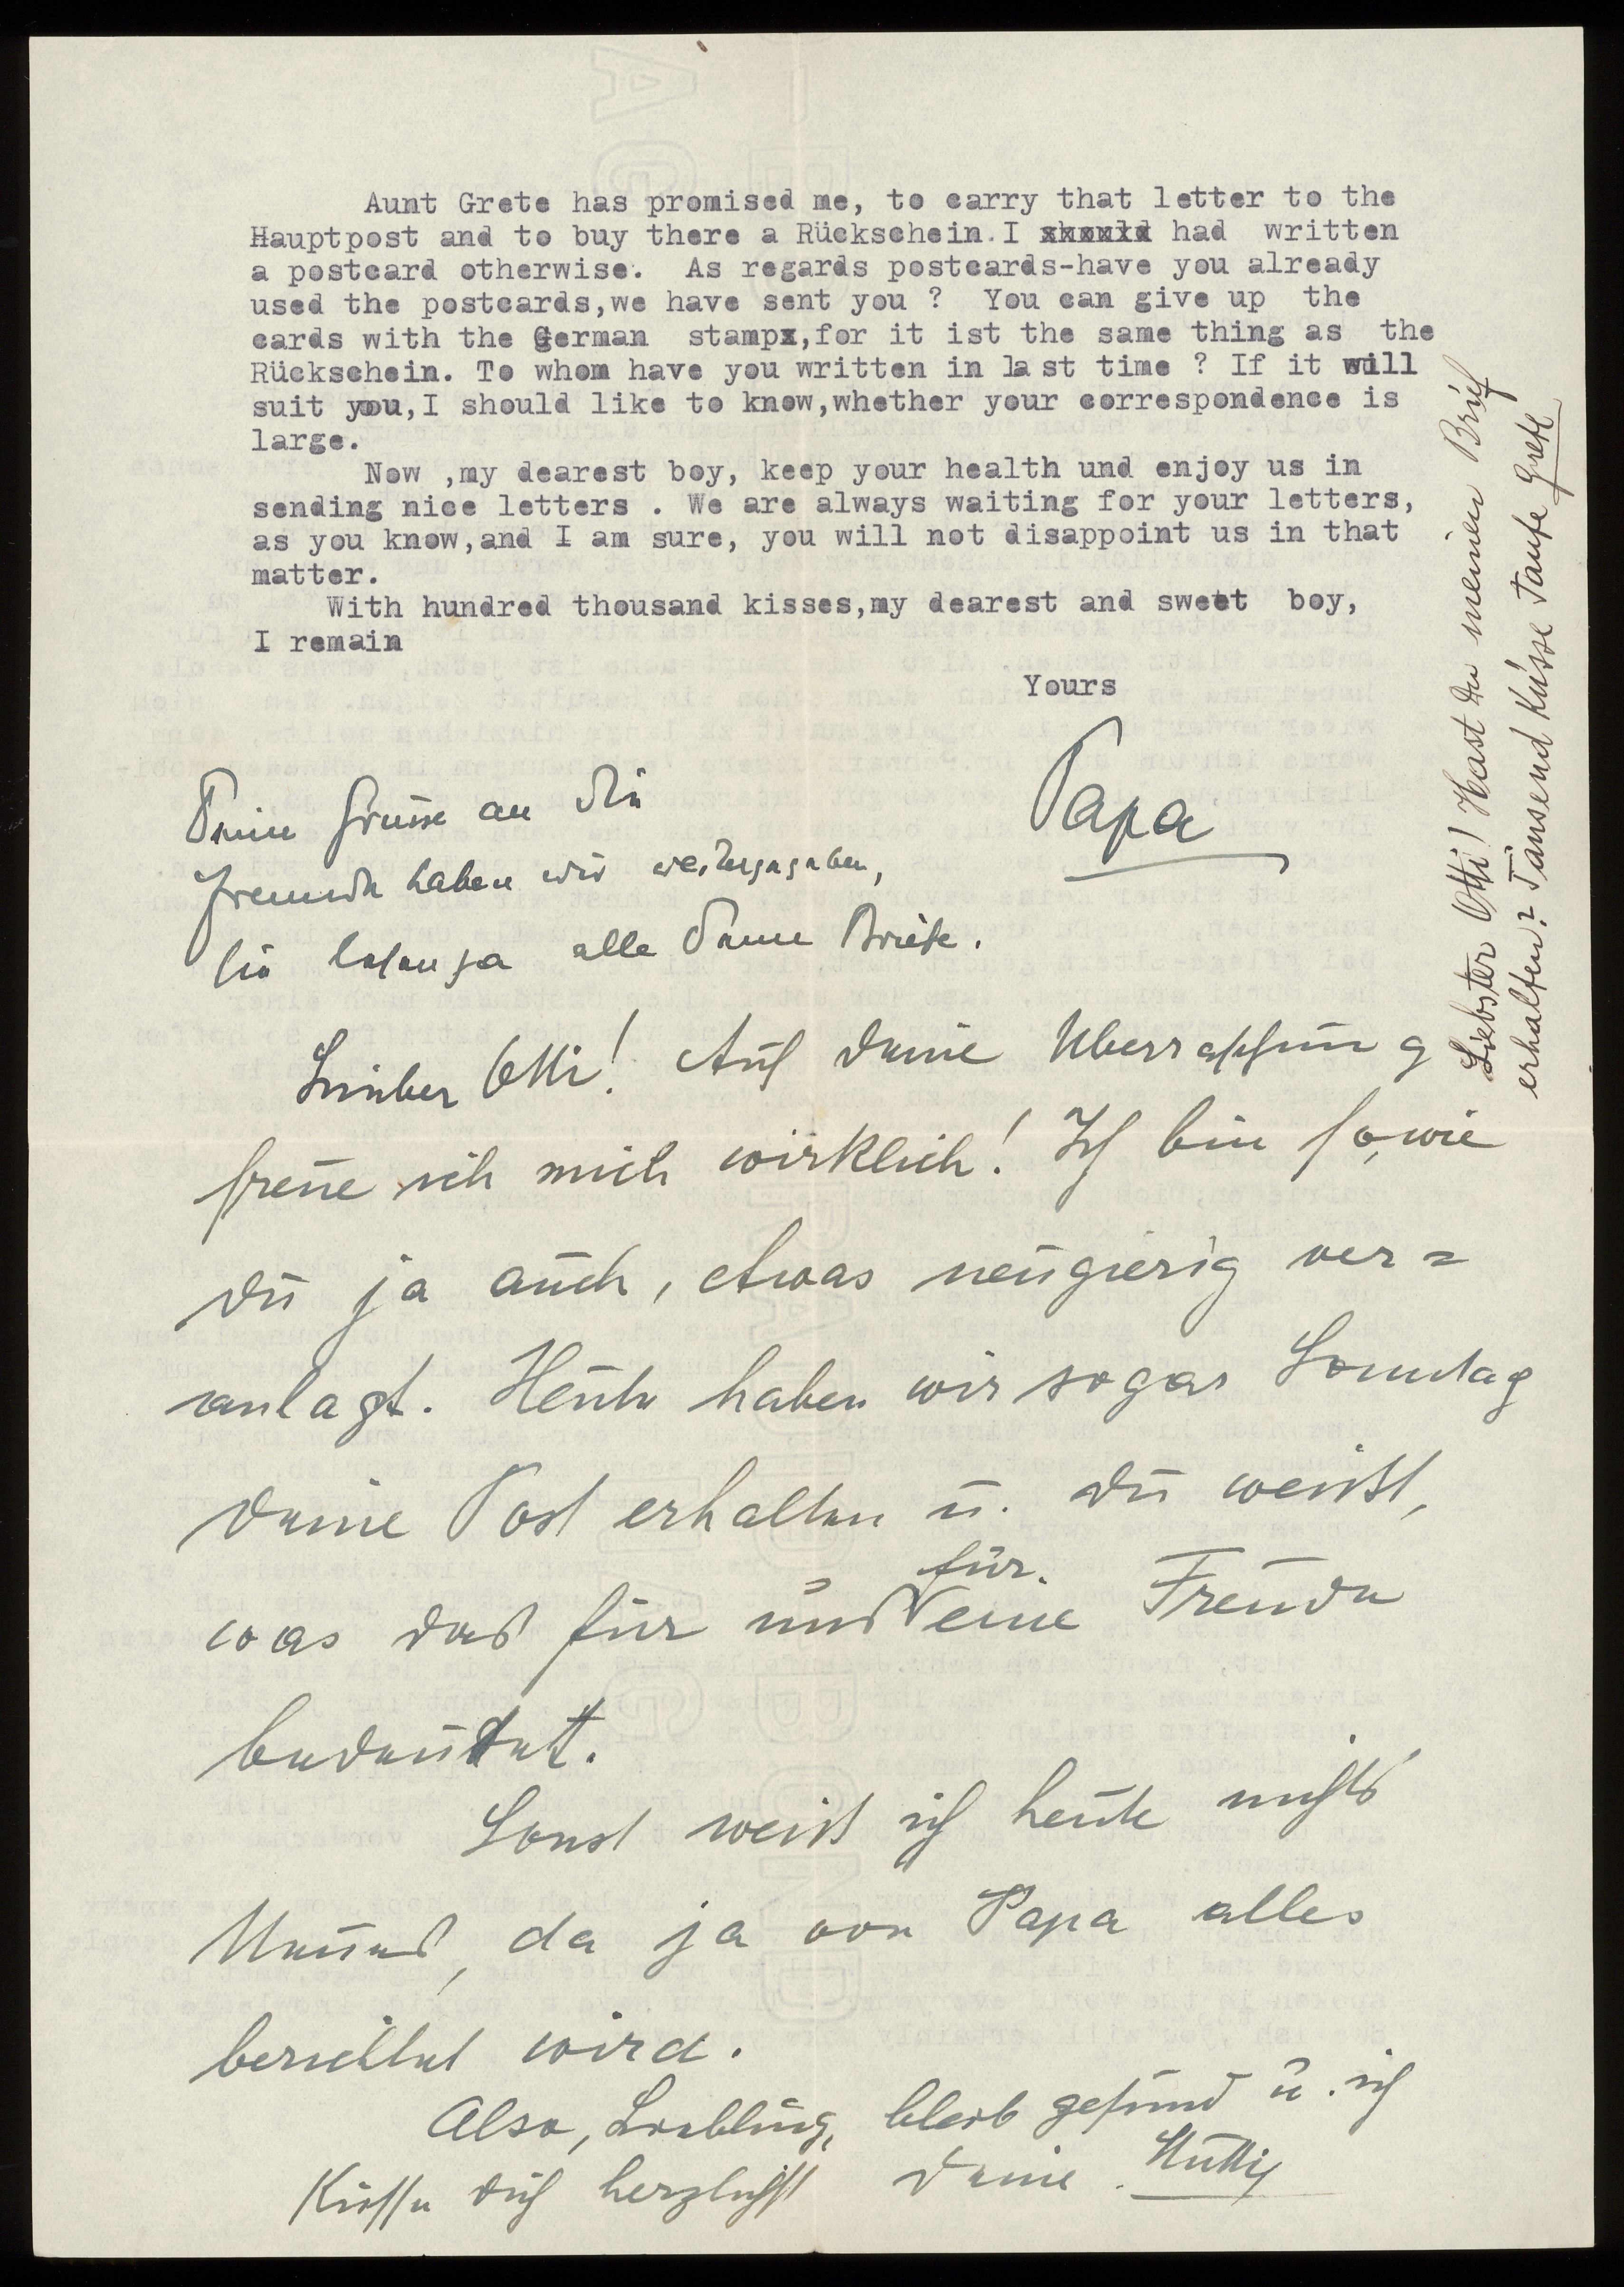 Aunt Grete has promised me, to carry that letter to the
Hauptpost and to buy there a Rückschein.I xxxxxxx had written
a postcard otherwise. As regards postcards-have you already
used the postcards,we have sent you ? You can give up the
cards with the German stampx,for it ist the same thing as the
Rückschein. To whom have you written in last time ? If it will
suit you,I should like to know,whether your correspondence is
large.
Now ,my dearest boy, keep your health und enjoy us in
sending nice letters . We are always waiting for your letters,
as you know,and I am sure, you will not disappoint us in that
matter.
With hundred thousand kisses,my dearest and sweet boy,
I remain
Yours
Papa
Deine Grüsse an die
Freunde haben wir weitergegeben,
sie lesen ja alle Deine Briefe.
Lieber Otti! Auf deine Überraschung
freue ich mich wirklich! Ich bin so, wie
du ja auch, etwas neugierig ver=
anlagt. Heute haben wir sogar Sonntag
deine Post erhalten u. du weißt,
was das für uns für eine Freude
bedeutet.
Sonst weiß ich heute nichts
Neues, da ja von Papa alles
berichtet wird.
Also, Liebling, bleib gesund u. ich
küsse dich herzlichst deine Mutti
Liebster Otti! Hast du meinen Brief
erhalten? Tausend Küsse Tante Grete